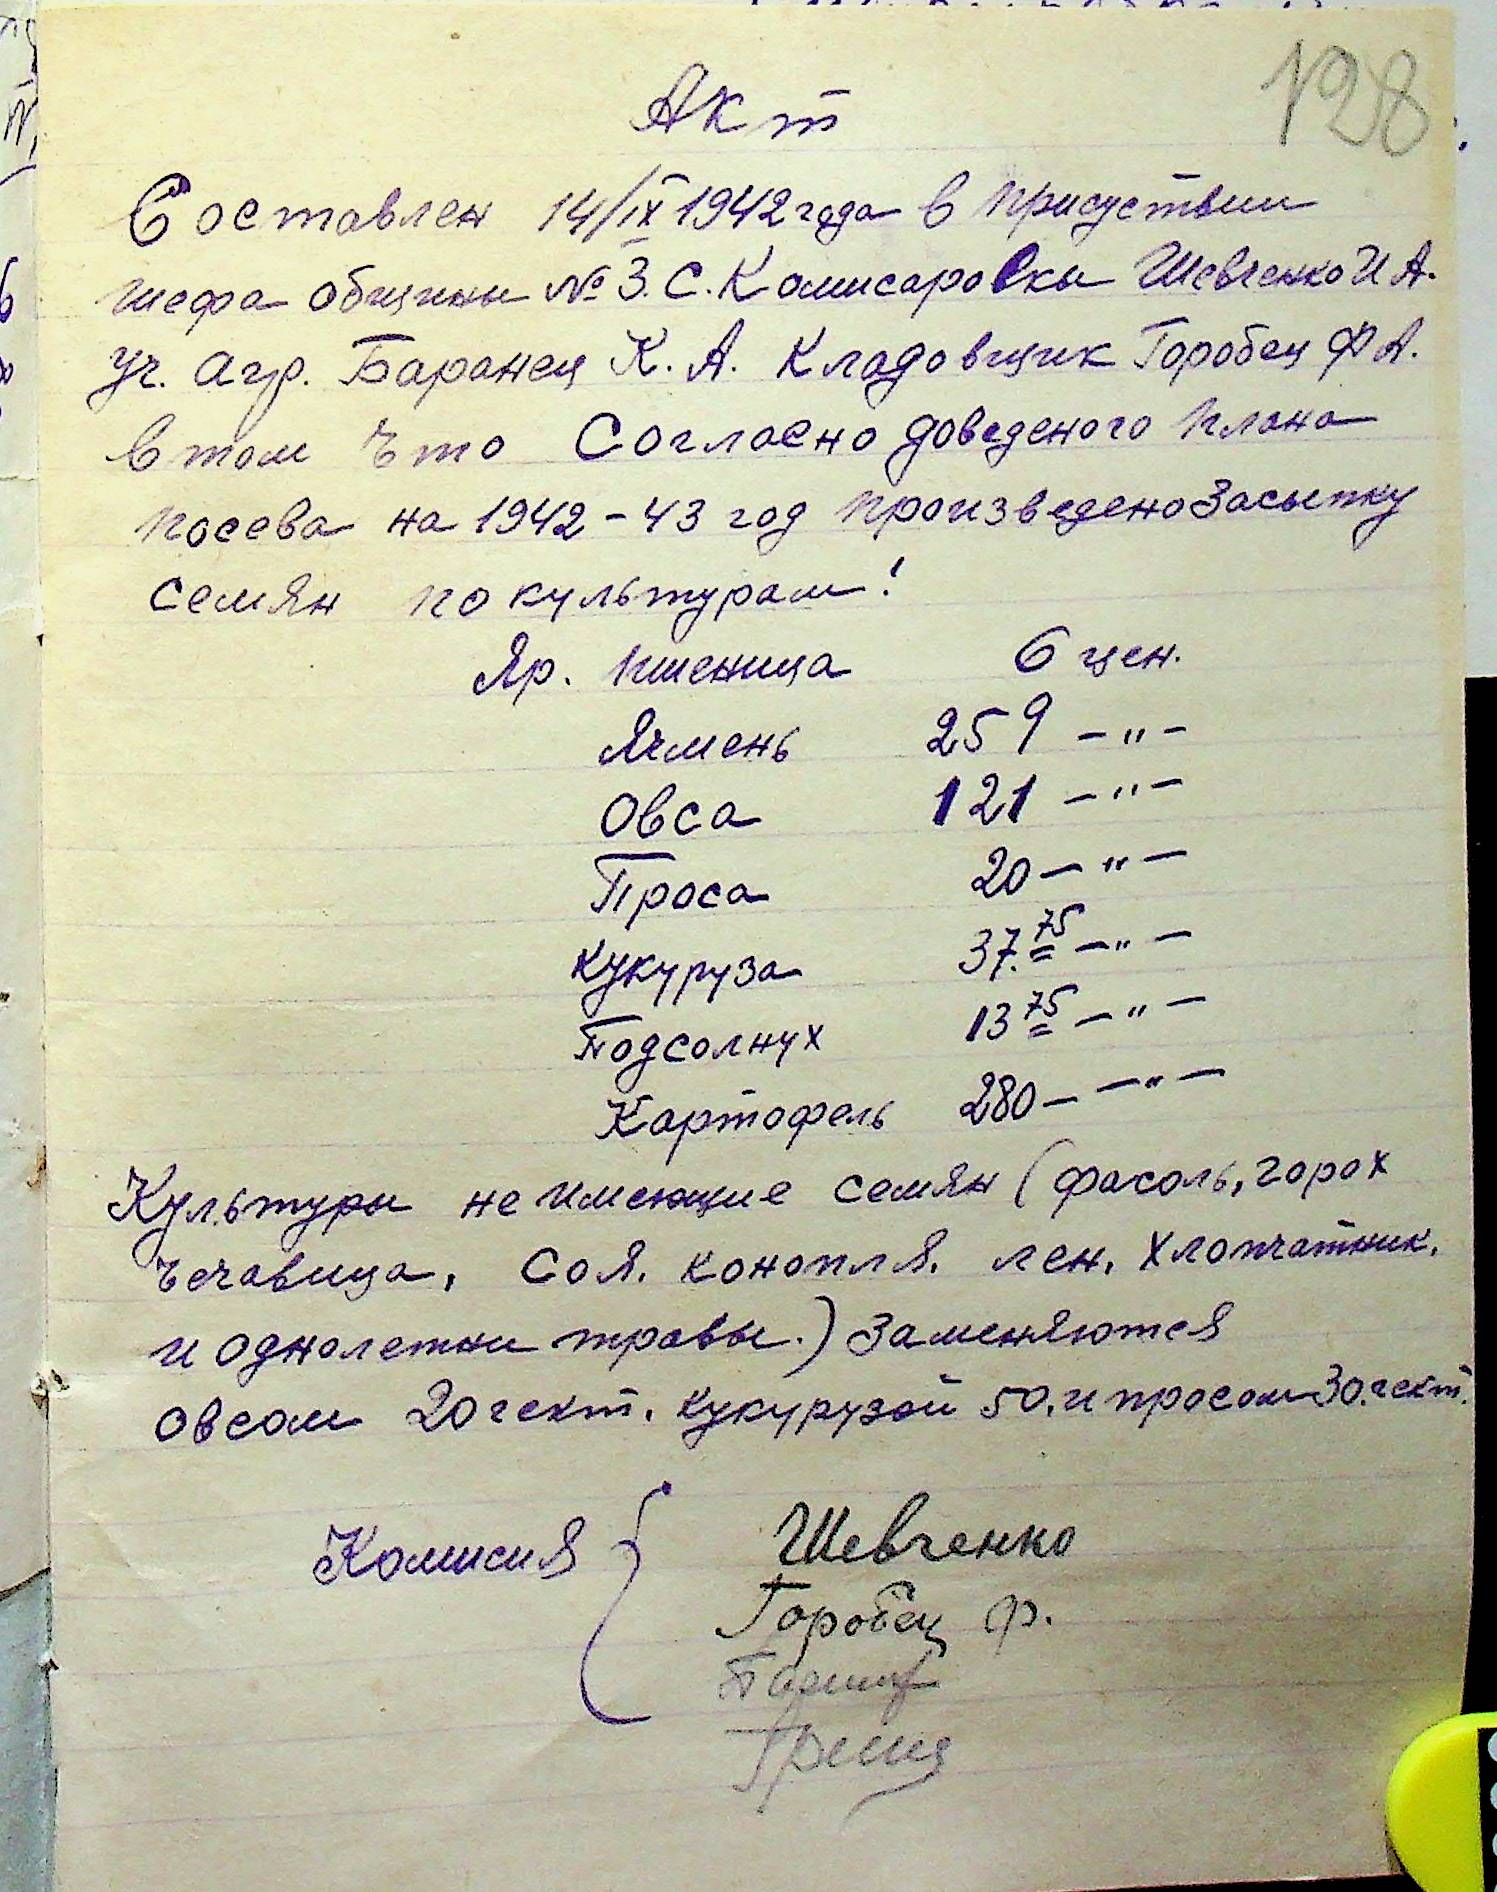 128
Акт
Составлен 14/IX 1942 года в присуствии
шефа общины № 3. С. Комисаровки Шевченко И А.
уч. агр. Баранец К. А. Кладовщик Горобец Ф А.
в том что Согласно доведеного плана
посева на 1942 – 43 год произведено засыпку
семян по культурам!
Яр. пшеница 6 цен.
Ячмень 259 – " –
Овса 121 – " –
Проса 20 – " –
Кукуруза 37.75 – " –
Подсолнух 13 75 – " –
Картофель 280 – – " –
Культуры не имеющие семян (фасоль, горох
чечавица, соя. конопля. лен, хлопчатник.
и однолетни травы.) заменяются
овсом 20 гект. кукурузой 50. и просом 30. гект.
Комисия
Шевченко
Горобец Ф.